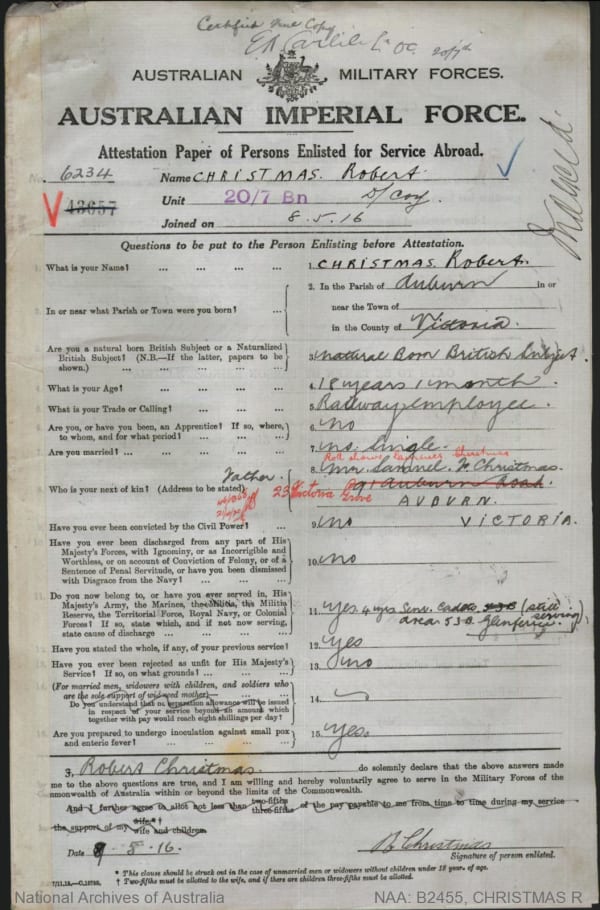 Certified True Copy
20/7th
AUSTRALIAN MILITARY FORCES.
AUSTRALIAN IMPERIAL FORCE.
Attestation Paper of Persons Enlisted for Service Abroad.
No. 6234 Name CHRISTMAS. Robert
43657 Unit 20/7 Bn D/Coy.
Joined on 8.5.16
Questions to be put to the Person Enlisting before Attestation.
1. What is your Name? ... ... ... ... 1. CHRISTMAS. Robert.
2. In or near what Parish or Town were you born? ... 2. In the Parish of Auburn in or
near the Town of
in the County of Victoria.
3. Are you a natural born British Subject or a Naturalized
British Subject? (N.B.—If the latter, papers to be
shown.) ... ... ... ... 3. Natural Born British Subject.
4. What is your Age? ... ... ... ... 4. 18 years 1 month.
5. What is your Trade or Calling? ... ... ... 5. Railway employee.
6. Are you, or have you been, an Apprentice? If so, where,
to whom, and for what period? ... ... ... 6. no
7. Are you married? ... ... ... ... 7. no. Single.
Roll shows Christmas
8. Mr. Samuel H. Christmas.
Father.
Who is your next of kin? (Address to be stated) 23 Victoria Grove 91 Auburn Road.
AUBURN.
9. Have you ever been convicted by the Civil Power? ... 9. no VICTORIA.
10. Have you ever been discharged from any part of His
Majesty's Forces, with Ignominy, or as Incorrigible and
Worthless, or on account of Conviction of Felony, or of a
Sentence of Penal Servitude, or have you been dismissed
with Disgrace from the Navy? ... ... ... 10. no
11. Do you now belong to, or have you ever served in, His
Majesty's Army, the Marines, the Militia, the Militia
Reserve, the Territorial Force, Royal Navy, or Colonial
Forces? If so, state which, and if not now serving,
state cause of discharge ... ... ... 11. yes 4 yrs Senr. Cadets (still serving)
area 53B. Glenferrie.
12. Have you stated the whole, if any, of your previous service? 12. yes
13. Have you ever been rejected as unfit for His Majesty's
Service? If so, on what grounds? ... ... ... 13. no
14. (For married men, widowers with children, and soldiers who
are the sole support of widowed mother)—
Do you understand that no separation allowance will be issued
in respect of your service beyond an amount which
together with pay would reach eight shillings per day? 14.
15. Are you prepared to undergo inoculation against small pox
and enteric fever? ... ... ... ... 15. yes.
I, Robert Christmas. do solemnly declare that the above answers made
me to the above questions are true, and I am willing and hereby voluntarily agree to serve in the Military Forces of the
mmonwealth of Australia within or beyond the limits of the Commonwealth.
And I further agree to allot not less than two-fifths three-fifths of the pay payable to me from time to time during my service
the support of my wife* wife and children.
Date 8.16. R Christmas
Signature of person enlisted.
* This clause should be struck out in the case of unmarried men or widowers without children under 18 year of age.
† Two-fifths must be allotted to the wife, and if there are children three-fifths must be allotted.
National Archives of Australia NAA: B2455, CHRISTMAS R